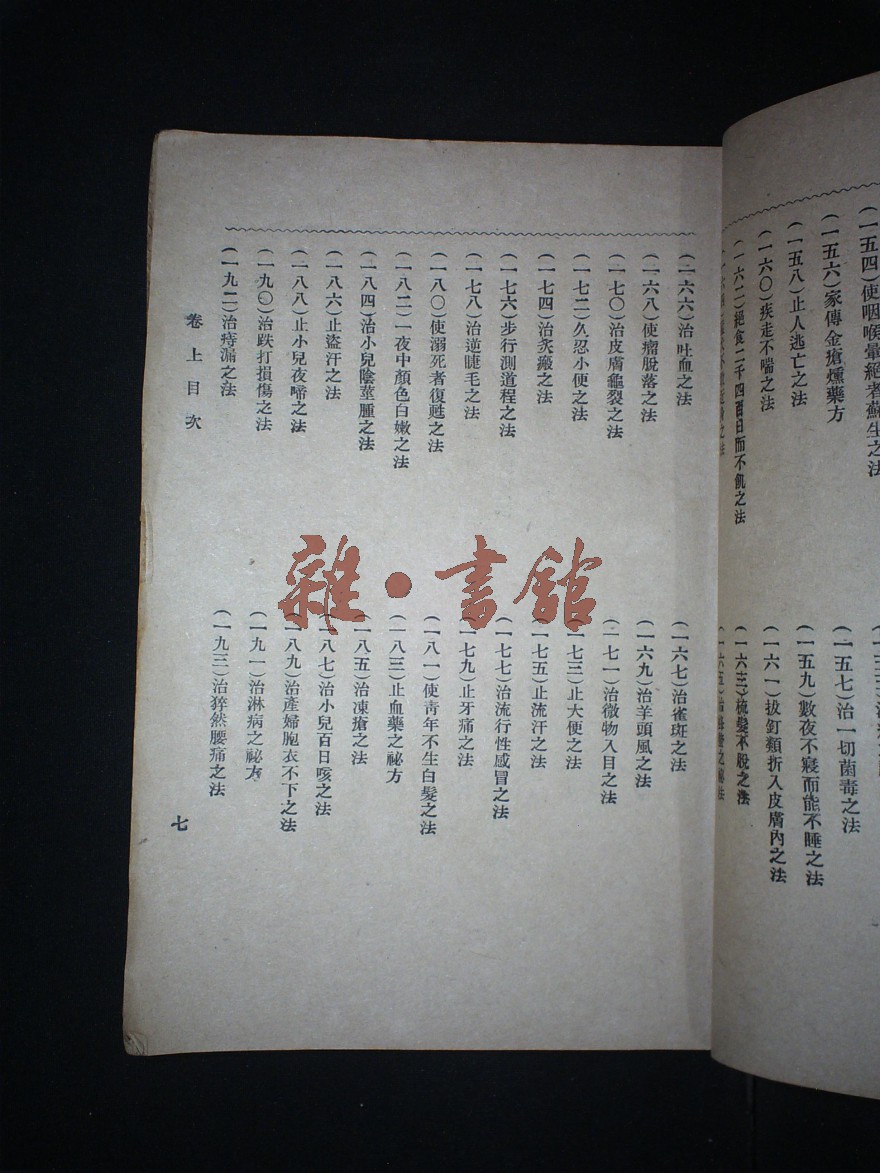 (一五四)使咽喉暈絕者蘇生之法
(一五六)家傳金瘡燻藥方
(一五八)止人逃亡之法
(一六〇)疾走不喘之法
(一六二)絕食二千四百日而不飢之法
(一五七)治一切菌毒之法
(一五九)數夜不寢而能不睡之法
(一六一)拔釘類折入皮膚內之法
(一六三)梳髮不脫之法
(一六六)治吐血之法
(一六八)使瘤脫落之法
(一七〇)治皮膚龜裂之法
(一七二)久忍小便之法
(一七四)治灸瘢之法
(一七六)步行測道程之法
(一七八)治逆睫毛之法
(一八〇)使溺死者復甦之法
(一八二)一夜中顏色白嫩之法
(一八四)治小兒陰莖腫之法
(一八六)止盜汗之法
(一八八)止小兒夜啼之法
(一九〇)治跌打損傷之法
(一九二)治痔漏之法
(一六七)治雀斑之法
(一六九)治羊頭風之法
(一七一)治微物入目之法
(一七三)止大便之法
(一七五)止流汗之法
(一七七)治流行性感冒之法
(一七九)止牙痛之法
(一八一)使青年不生白髮之法
(一八三)止血藥之祕方
(一八五)治凍瘡之法
(一八七)治小兒百日咳之法
(一八九)治產婦胞衣不下之法
(一九一)治淋病之祕方
(一九三)治猝然腰痛之法
卷上目次
七
雜·書館